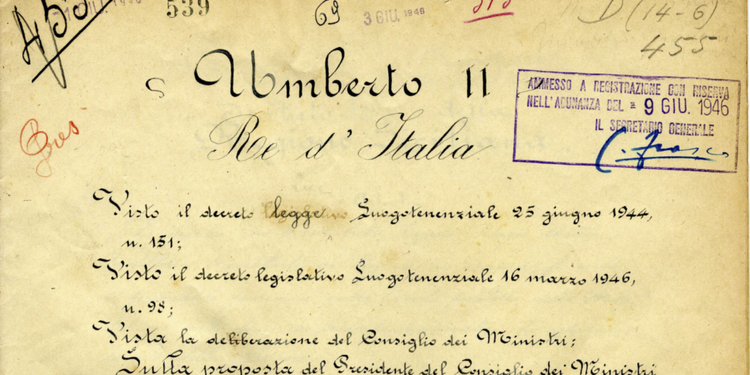 539
69
3 GIU. 1946
D (14-6)
455
Umberto II
AMMESSO A REGISTRAZIONE CON RISERVA
NELL'ADUNANZA DEL = 9 GIU. 1946
IL SEGRETARIO GENERALE
Re d'Italia
Visto il decreto legge Luogotenenziale 25 giugno 1944,
n. 151;
Visto il decreto legislativo Luogotenenziale 16 marzo 1946,
n. 98;
Vista la deliberazione del Consiglio dei Ministri;
Sulla proposta del Presidente del Consiglio dei Ministri